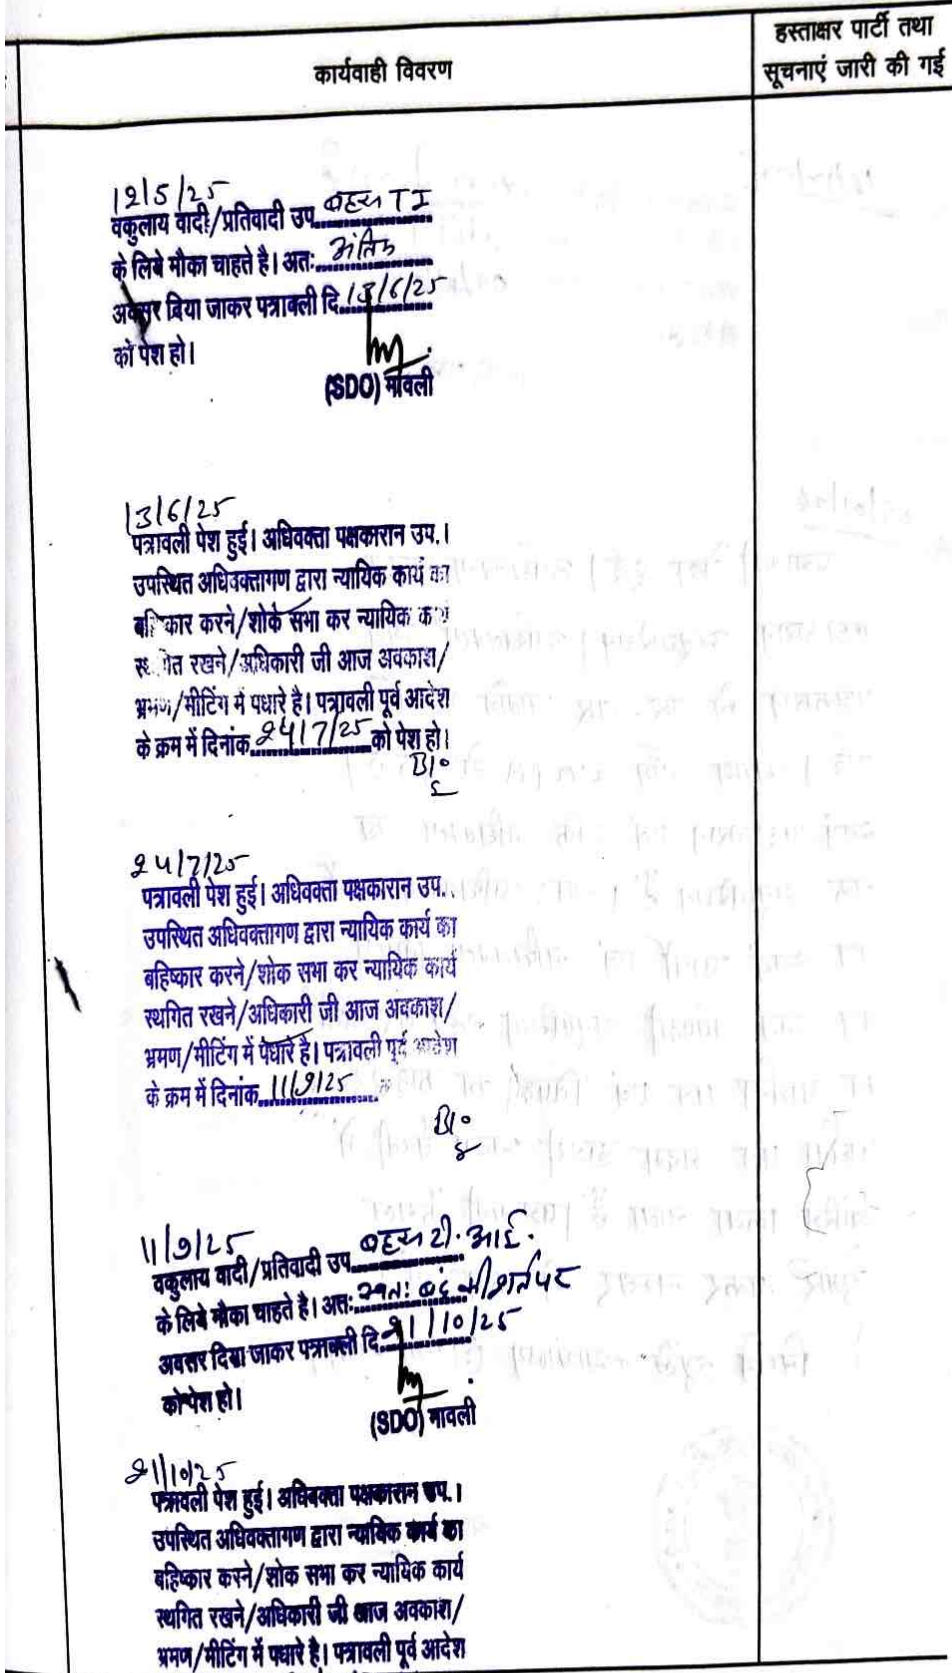 हस्ताक्षर पार्टी तथा
सूचनाएं जारी की गई
कार्यवाही विवरण
12/5/25
वकुलाय वादी/प्रतिवादी उप. बहस TI
के लिये मौका चाहते है। अतः अंतिम
अवसर दिया जाकर पत्रावली दि. 13/6/25
को पेश हो।
(SDO) मावली
13/6/25
पत्रावली पेश हुई। अधिवक्ता पक्षकारान उप.।
उपस्थित अधिवक्तागण द्वारा न्यायिक कार्य का
बहिष्कार करने/शोक सभा कर न्यायिक कार्य
स्थगित रखने/अधिकारी जी आज अवकाश/
भ्रमण/मीटिंग में पधारे है। पत्रावली पूर्व आदेश
के क्रम में दिनांक 24/7/25 को पेश हो।
24/7/25
पत्रावली पेश हुई। अधिवक्ता पक्षकारान उप..
उपस्थित अधिवक्तागण द्वारा न्यायिक कार्य का
बहिष्कार करने/शोक सभा कर न्यायिक कार्य
स्थगित रखने/अधिकारी जी आज अवकाश/
भ्रमण/मीटिंग में पधारे है। पत्रावली पूर्व आदेश
के क्रम में दिनांक 11/9/25
11/9/25
वकुलाय वादी/प्रतिवादी उप. बहस टी. आई.
के लिये मौका चाहते है। अतः स्वतः बंद की शर्त पर
अवसर दिया जाकर पत्रावली दि. 21/10/25
को पेश हो।
(SDO) मावली
21/10/25
पत्रावली पेश हुई। अधिवक्ता पक्षकारान उप.।
उपस्थित अधिवक्तागण द्वारा न्यायिक कार्य का
बहिष्कार करने/शोक सभा कर न्यायिक कार्य
स्थगित रखने/अधिकारी जी आज अवकाश/
भ्रमण/मीटिंग में पधारे है। पत्रावली पूर्व आदेश